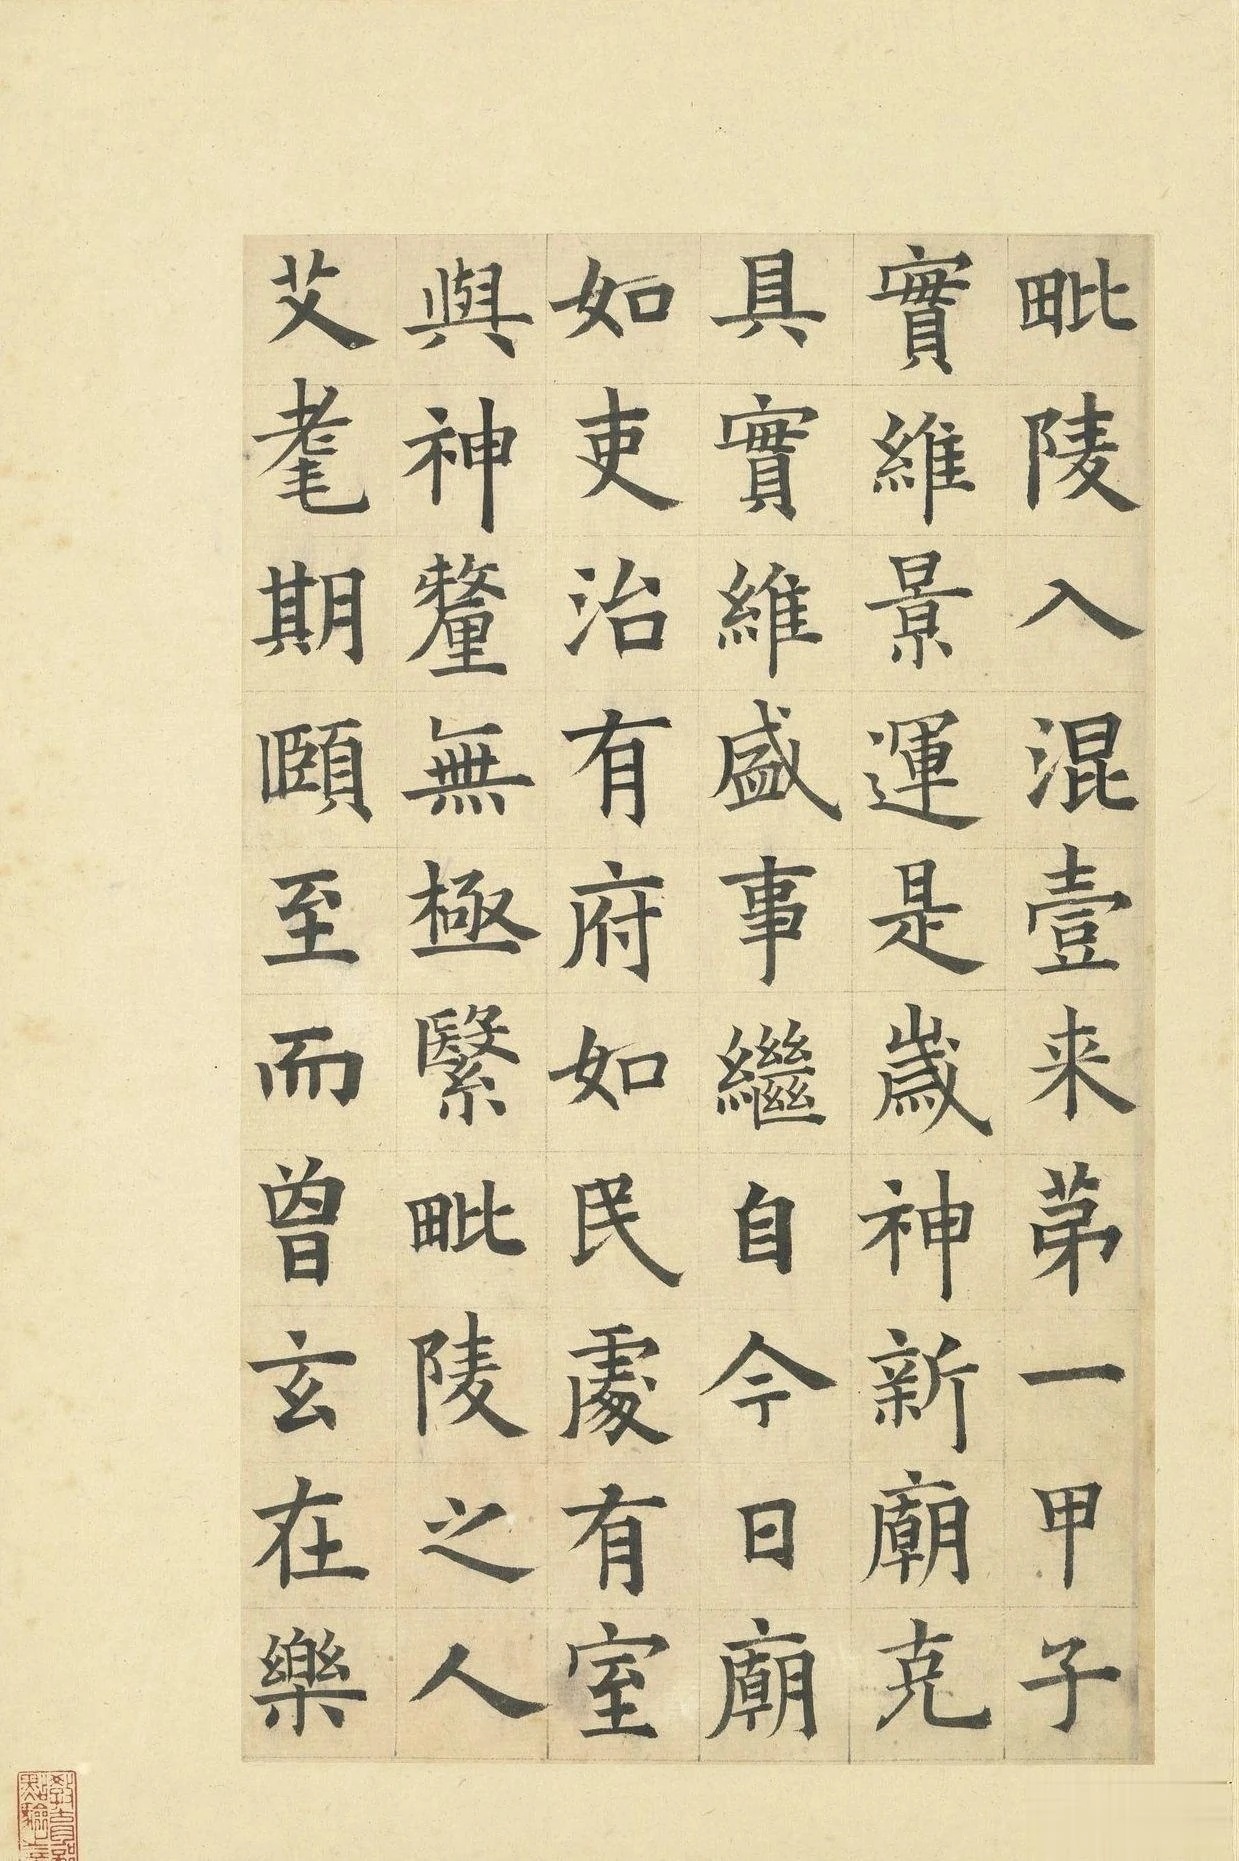 毗陵入混壹来苐一甲子
實維景運是歲神新廟克
具實維盛事繼自今日廟
如吏治有府如民處有室
與神釐無極繄毗陵之人
艾耄期頤至而曾玄在樂